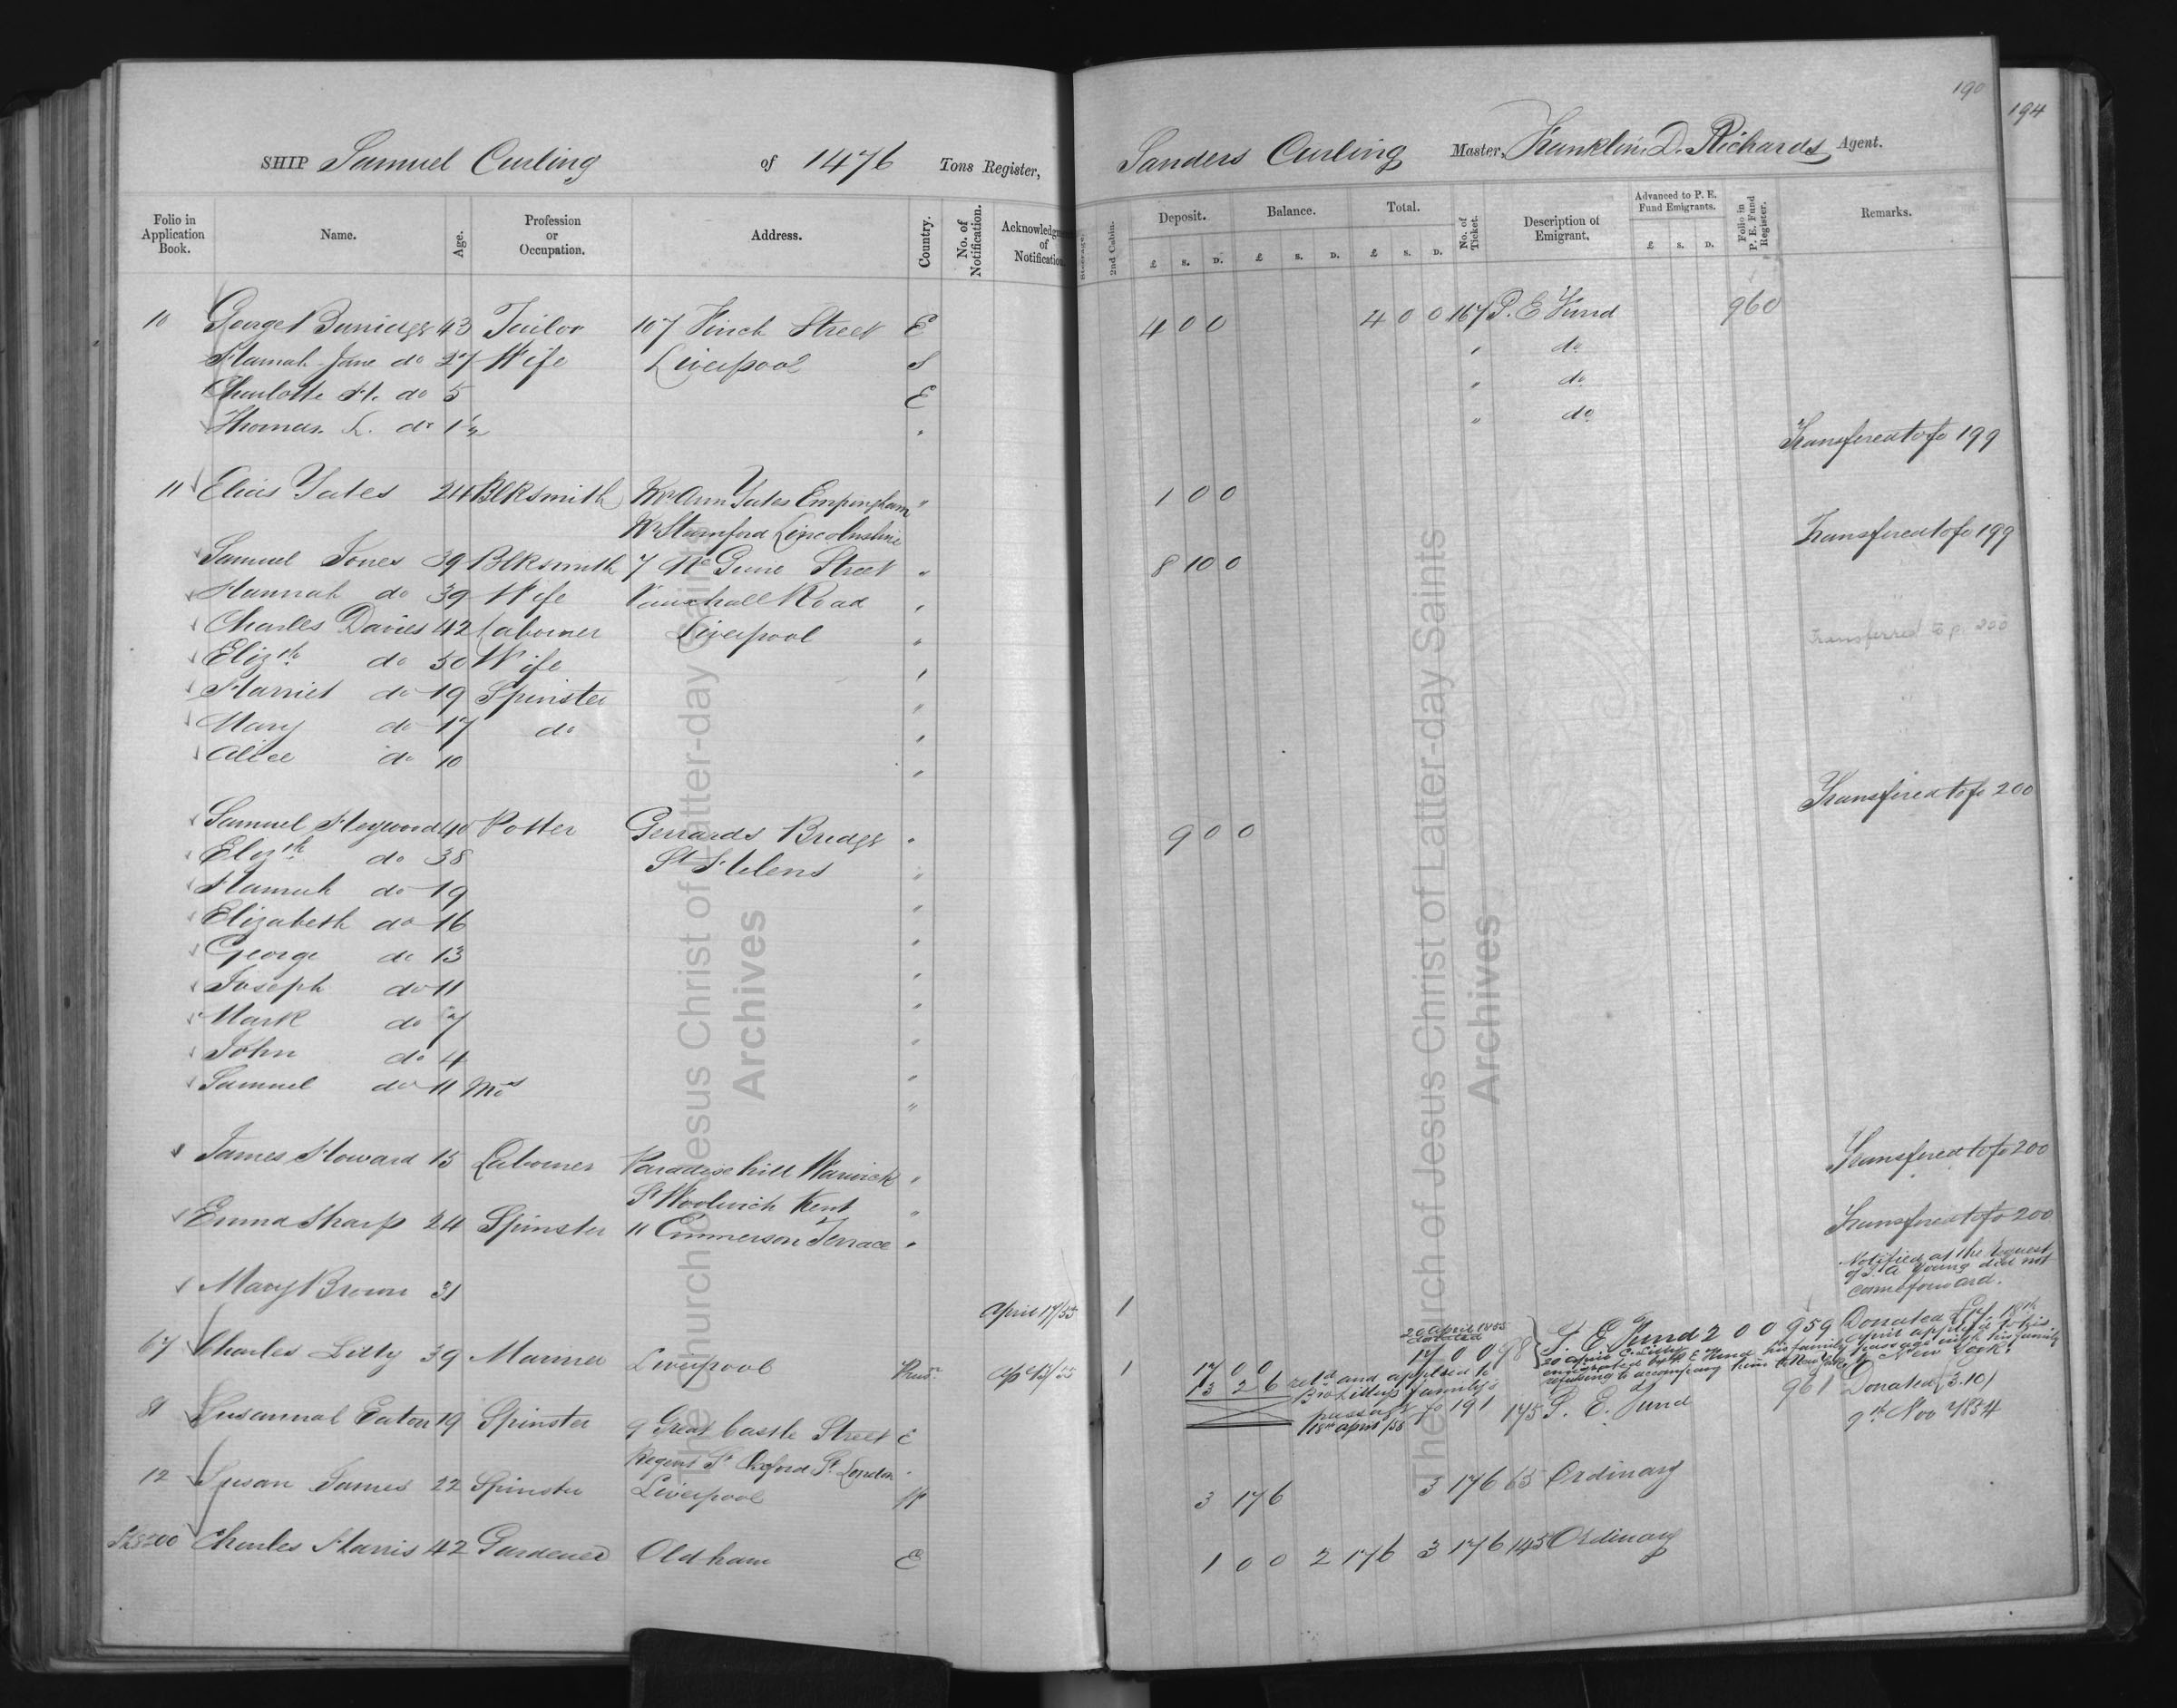 190
194
SHIP Samuel Curling of 1476 Tons Register, Sanders Curling Master, Franklin D. Richards Agent.
Folio in Application Book. Name. Age. Profession or Occupation. Address. Country. No. of Notification. Acknowledgment of Notification. Steerage. 2nd Cabin. Deposit. Balance. Total. No. of Ticket. Description of Emigrant. Advanced to P. E. Fund Emigrants. Folio in P. E. Fund Register. Remarks.
£ S. D. £ S. D. £ S. D. £ S. D.
10 George 43 Tailor 107 Finch Street E 4 0 0 4 0 0 167 P. E Fund 960
Hannah Jane do 27 Wife Liverpool S " do
Charlotte H. do 5 E " do
Thomas L. do 1½ " " do
Transfered to fo 199
11 Elias Yates 24 Blksmith Mrs Ann Yates Empingham " 1 0 0
Nr Stamford Lincolnshire
Transfered to fo 199
Samuel Jones 39 Blksmith 7 Street " 8 10 0
Hannah do 39 Wife Vauxhall Road "
Charles Davies 42 Labourer Liverpool " Transferred to p. 200
Elizth do 50 Wife "
Harriet do 19 Spinster "
Mary do 17 do "
Alice do 10 "
Transfered to fo 200
Samuel Heywood 40 Potter Gerrards Bridge " 9 0 0
Elizth do 38 St Helens "
Hannah do 19 "
Elizabeth do 16 "
George do 13 "
Joseph do 11 "
Mark do 7 "
John do 4 "
Samuel do 11 Mos "
Transfered to fo 200
James Howard 15 Labourer Paradise hill Warwick "
St Woolwich Kent "
Transfered to fo 200
Emma Sharp 24 Spinster 11 Emmerson Terrace "
Notified at the request
of J. A Young did not
come forward.
Mary Brown 31 April 17/55 1
67 Charles Litty 39 Mariner Liverpool Ap 17/55 1 17 0 0 20 April 1855 donated 17 0 0 98 P. E Fund 2 0 0 959 Donated £17, 18th
April applied to his
passage with his family
to New York.
20 April C. Litty
emigrated by P E Fund his family
refusing to accompany him to New York
13 2 6 retd and applied to
Bro Litty's family's
passage fo 191
18th April /55
81 Susannah Eaton 19 Spinster 9 Great Castle Street E 175 P. E. Fund 961 Donated (3.10)
9th Nov 1854
Regent St Oxford St London
12 Susan James 22 Spinster Liverpool W 3 17 6 3 17 6 65 Ordinary
200 Charles Harris 42 Gardener Oldham E 1 0 0 2 17 6 3 17 6 145 Ordinary
The Church of Jesus Christ of Latter-day Saints
Archives
The Church of Jesus Christ of Latter-day Saints
Archives